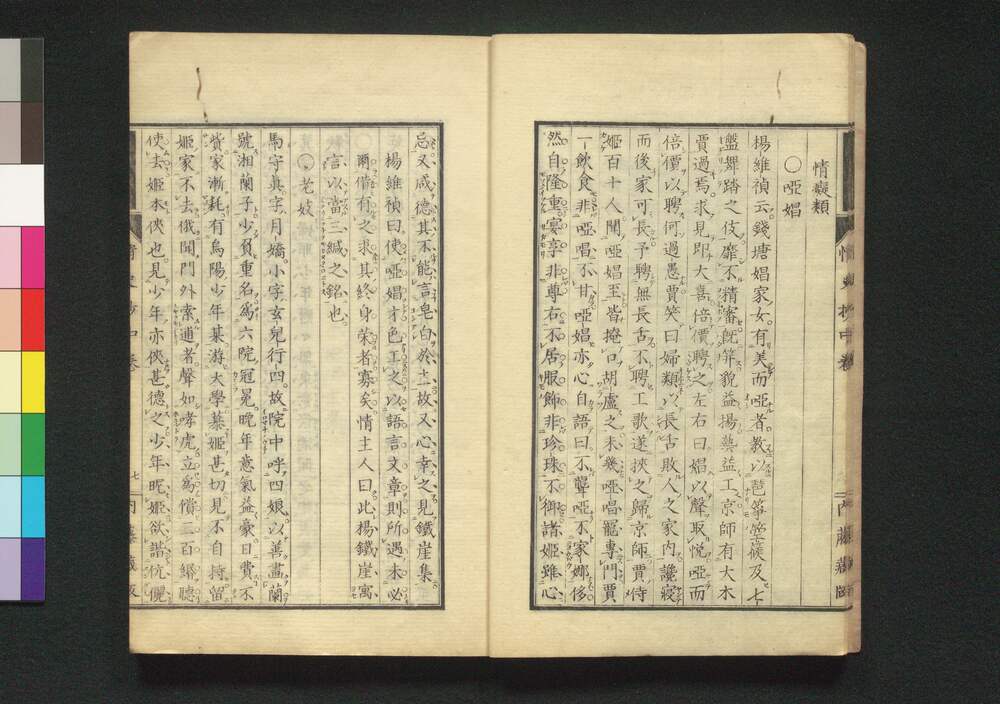 情癡類
〇啞娼
楊維禎云錢塘娼家女有美而啞者教以琵筝箜篌及七
盤舞踏之伎靡不精審既筓貌益揚藝益工京師有大木
賈過焉求見即大喜倍價聘之左右曰娼以聲取悅啞而
倍價以聘何過愚賈笑曰婦類以長舌敗人之家內讒寢
而後家可長予聘無長舌不聘工歌遂挾之歸京師賈侍
姬百十人聞啞娼至皆掩口胡盧之未幾啞唱寵專門賈
一飲食非啞唱不甘啞娼亦心自語曰不聾啞不家娜侈
然自隆重宴享非尊右不居服飾非珍珠不御諸姬雖心
忌又感德其不能言皂白於士故又心幸之見鐵崖集
楊維禎曰使啞娼才色工之以語言文章則所遇未必
爾借有之求其終身荣者寡矣情主人曰此楊鐵崖寓
言以當三緘之銘也
〇老妓
馬守真字月嬌小字玄兒行四故院中呼四娘以善畫蘭
號湘蘭子少負重名為六院冠冕晚年意氣益豪日費不
貲家漸耗有烏陽少年某游大學慕姬甚切見不自持留
姬家不去俄聞門外索逋者聲如哮虎立為償三百緡聽
使去姬本俠也見少年亦俠甚德之少年昵姬欲諧伉儷
情史抄中卷
七